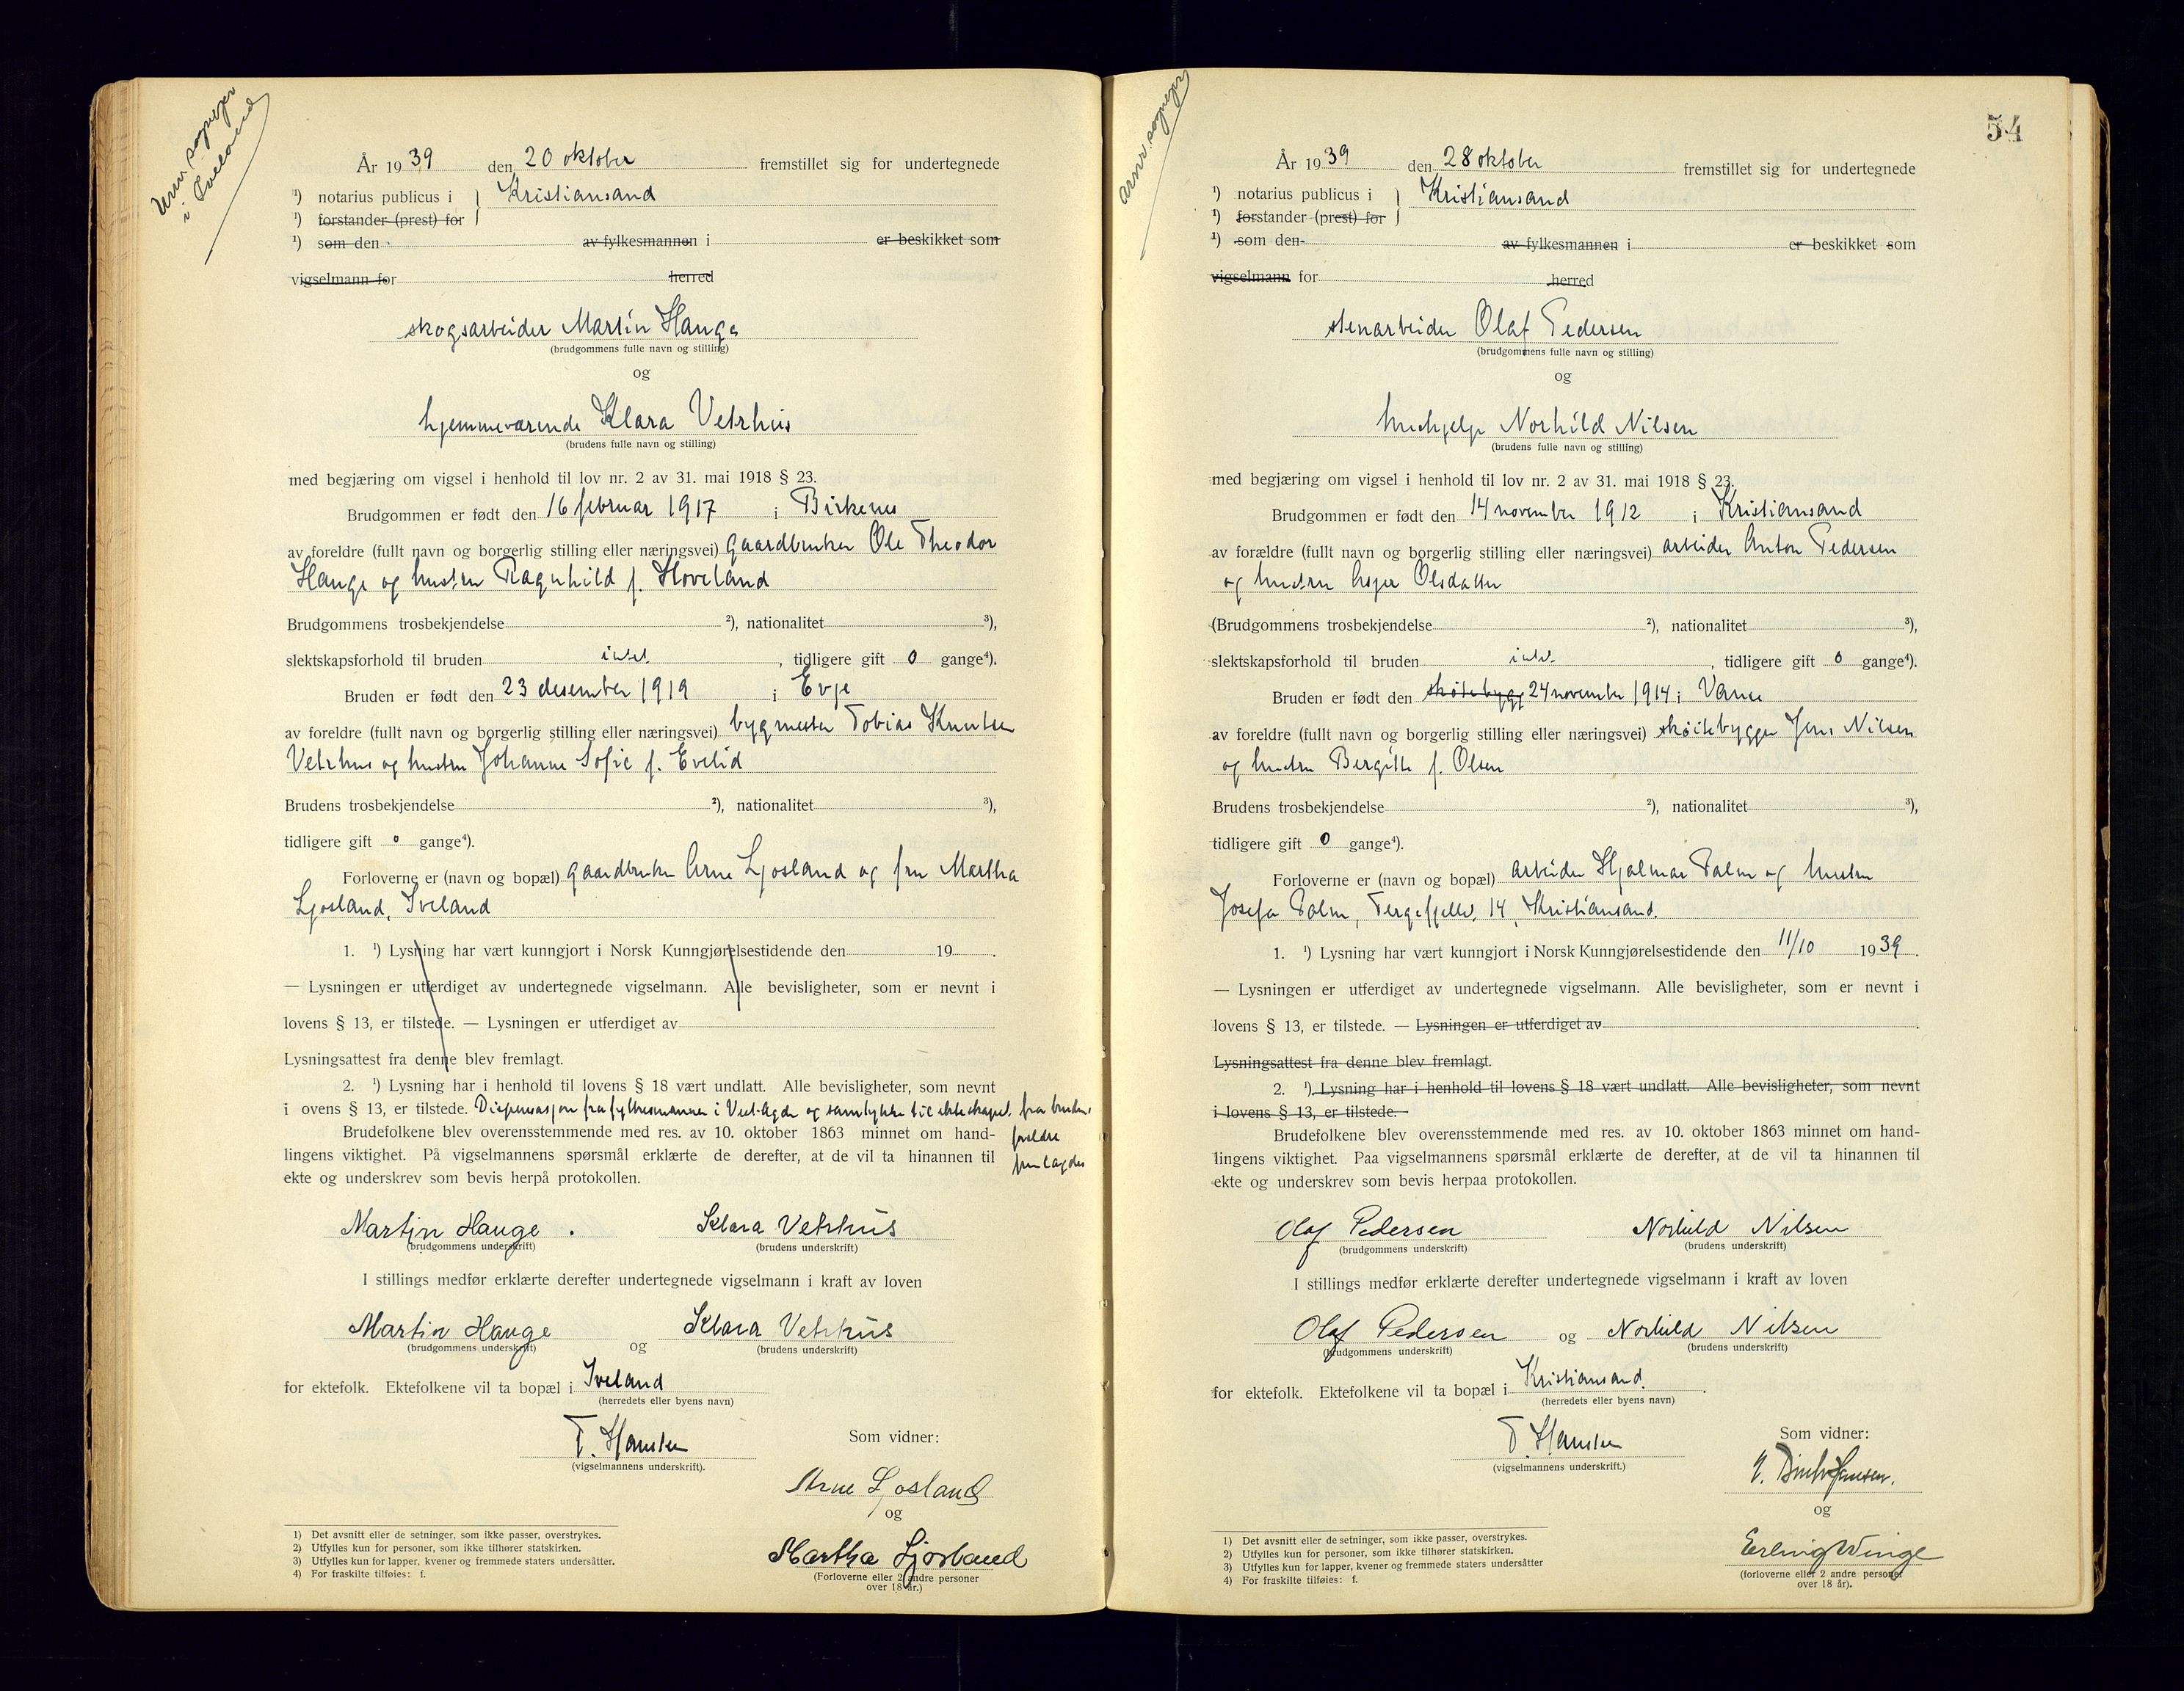 sogneprest
i Iveland
År 1939 den 20 oktober fremstillet sig for undertegnede
¹) notarius publicus i } Kristiansand
¹) forstander (prest) for
¹) som den av fylkesmannen i er beskikket som
vigselmann for herred
skogsarbeider Martin Hauge
(brudgommens fulle navn og stilling)
og
hjemmeværende Klara Vetrhus
(brudens fulle navn og stilling)
med begjæring om vigsel i henhold til lov nr. 2 av 31. mai 1918 § 23.
Brudgommen er født den 16 februar 1917 i Birkenes
av foreldre (fullt navn og borgerlig stilling eller næringsvei) gaardbruker Ole Theodor
Hauge og hustru Ragnhild f. Hoveland
Brudgommens trosbekjendelse ²), nationalitet ³),
slektskapsforhold til bruden intet, tidligere gift 0 gange⁴).
Bruden er født den 23 desember 1919 i Evje
av foreldre (fullt navn og borgerlig stilling eller næringsvei) bygmester Tobias Knutsen
Vetrhus og hustru Johanne Sofie f. Evelid
Brudens trosbekjendelse ²), nationalitet ³),
tidligere gift 0 gange⁴).
Forloverne er (navn og bopæl) gaardbruker Arne Ljosland og fru Martha
Ljosland, Iveland
1. ¹) Lysning har vært kunngjort i Norsk Kunngjørelsestidende den 19 .
— Lysningen er utferdiget av undertegnede vigselmann. Alle bevisligheter, som er nevnt i
lovens § 13, er tilstede. — Lysningen er utferdiget av
Lysningsattest fra denne blev fremlagt.
2. ¹) Lysning har i henhold til lovens § 18 vært undlatt. Alle bevisligheter, som nevnt
i ovens § 13, er tilstede. Dispensasjon fra fylkesmannen i Vest-Agder og samtykke til ekteskapet fra brudens
foreldre
fremlagdes
Brudefolkene blev overensstemmende med res. av 10. oktober 1863 minnet om hand-
lingens viktighet. På vigselmannens spørsmål erklærte de derefter, at de vil ta hinannen til
ekte og underskrev som bevis herpå protokollen.
Martin Hauge . Klara Vetrhus
(brudgommens underskrift) (brudens underskrift)
I stillings medfør erklærte derefter undertegnede vigselmann i kraft av loven
Martin Hauge og Klara Vetrhus
(brudgommens underskrift) (brudens underskrift)
for ektefolk. Ektefolkene vil ta bopæl i Iveland
(herredets eller byens navn)
T. Hansen
(vigselmannens underskrift).
Som vidner:
Arne Ljosland
og
Martha Ljosland
(Forloverne eller 2 andre personer
over 18 år.)
1) Det avsnitt eller de setninger, som ikke passer, overstrykes.
2) Utfylles kun for personer, som ikke tilhører statskirken.
3) Utfylles kun for lapper, kvener og fremmede staters undersåtter.
4) For fraskilte tilføies: f.
sogneprest
54
År 1939 den 28 oktober fremstillet sig for undertegnede
¹) notarius publicus i } Kristiansand
¹) forstander (prest) for
¹) som den av fylkesmannen i er beskikket som
vigselmann for herred
stenarbeider Olaf Pedersen
(brudgommens fulle navn og stilling)
og
hushjelp Norhild Nilsen
(brudens fulle navn og stilling)
med begjæring om vigsel i henhold til lov nr. 2 av 31. mai 1918 § 23.
Brudgommen er født den 14 november 1912 i Kristiansand
av forældre (fullt navn og borgerlig stilling eller næringsvei) arbeider Anton Pedersen
og hustru Olsdatter
(Brudgommens trosbekjendelse ²), nationalitet ³),
slektskapsforhold til bruden intet, tidligere gift 0 gange⁴).
Bruden er født den skøitebygg 24 november 1914 i Vanse
av foreldre (fullt navn og borgerlig stilling eller næringsvei) skøitebygger Jens Nilsen
og hustru Bergitte f. Olsen
Brudens trosbekjendelse ²), nationalitet ³),
tidligere gift 0 gange⁴).
Forloverne er (navn og bopæl) arbeider Hjalmar Palm og hustru
Josefa Palm, Fergefjellv. 14, Kristiansand.
1. ¹) Lysning har vært kunngjort i Norsk Kunngjørelsestidende den 11/10 1939.
— Lysningen er utferdiget av undertegnede vigselmann. Alle bevisligheter, som er nevnt i
lovens § 13, er tilstede. — Lysningen er utferdiget av .
Lysningsattest fra denne blev fremlagt.
2. ¹) Lysning har i henhold til lovens § 18 vært undlatt. Alle bevisligheter, som nevnt
i lovens § 13, er tilstede.
Brudefolkene blev overensstemmende med res. av 10. oktober 1863 minnet om hand-
lingens viktighet. Paa vigselmannens spørsmål erklærte de derefter, at de vil ta hinannen til
ekte og underskrev som bevis herpaa protokollen.
Olaf Pedersen Norhild Nilsen
(brudgommens underskrift) (brudens underskrift)
I stillings medfør erklærte derefter undertegnede vigselmann i kraft av loven
Olaf Pedersen og Norhild Nilsen
(brudgommens underskrift) (brudens underskrift)
for ektefolk. Ektefolkene vil ta bopæl i Kristiansand.
(herredets eller byens navn)
T. Hansen
(vigselmannens underskrift.)
Som vidner:
og
Erling Winge
(forloverne eller 2 andre personer
over 18 år).
1) Det avsnitt eller de setninger, som ikke passer, overstrykes.
2) Utfylles kun for personer, som ikke tilhører statskirken.
3) Utfylles kun for lapper, kvener og fremmede staters undersåtter
4) For fraskilte tilføies: f.